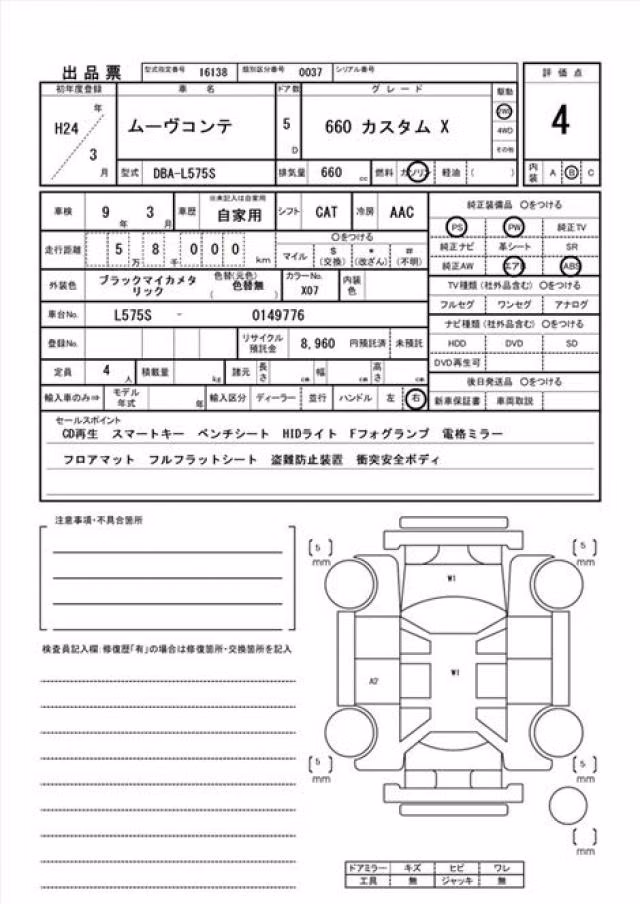 出品票 型式指定番号 16138 類別区分番号 0037 シリアル番号
評価点
初年度登録 車名 ドア数 グレード 駆動
H24年 ムーヴコンテ 5 D 660 カスタム X 2WD 4
3月 4WD
その他
型式 DBA-L575S 排気量 660 cc 燃料 ガソリン 軽油 ( ) 内装 A B C
車検 9年 3月 車歴 ※未記入は自家用 自家用 シフト CAT 冷房 AAC
純正装備品 〇をつける
PS PW 純正TV
純正ナビ 革シート SR
純正AW エアB ABS
走行距離 5万 8千 0 0 0 km 〇をつける
マイル $(交換) *(改ざん) #(不明)
外装色 ブラックマイカメタリック 色替(元色) ( 色替無 ) カラーNo. X07 内装色
TV種類(社外品含む) 〇をつける
フルセグ ワンセグ アナログ
車台No. L575S - 0149776
ナビ種類(社外品含む) 〇をつける
登録No. リサイクル預託金 8,960 円預託済 未預託
HDD DVD SD
DVD再生可
定員 4人 積載量 kg 諸元 長さ cm 幅 cm 高さ cm
後日発送品 〇をつける
輸入車のみ⇒ モデル年式 年 輸入区分 ディーラー 並行 ハンドル 左 右
新車保証書 車両取説
セールスポイント
CD再生 スマートキー ベンチシート HIDライト Fフォグランプ 電格ミラー
フロアマット フルフラットシート 盗難防止装置 衝突安全ボディ
注意事項・不具合箇所
検査員記入欄:修復歴「有」の場合は修復箇所・交換箇所を記入
[5] mm
[5] mm
W1
W1
A2
[5] mm
[5] mm
[ ] mm
ドアミラー キズ ヒビ ワレ
工具 無 ジャッキ 無